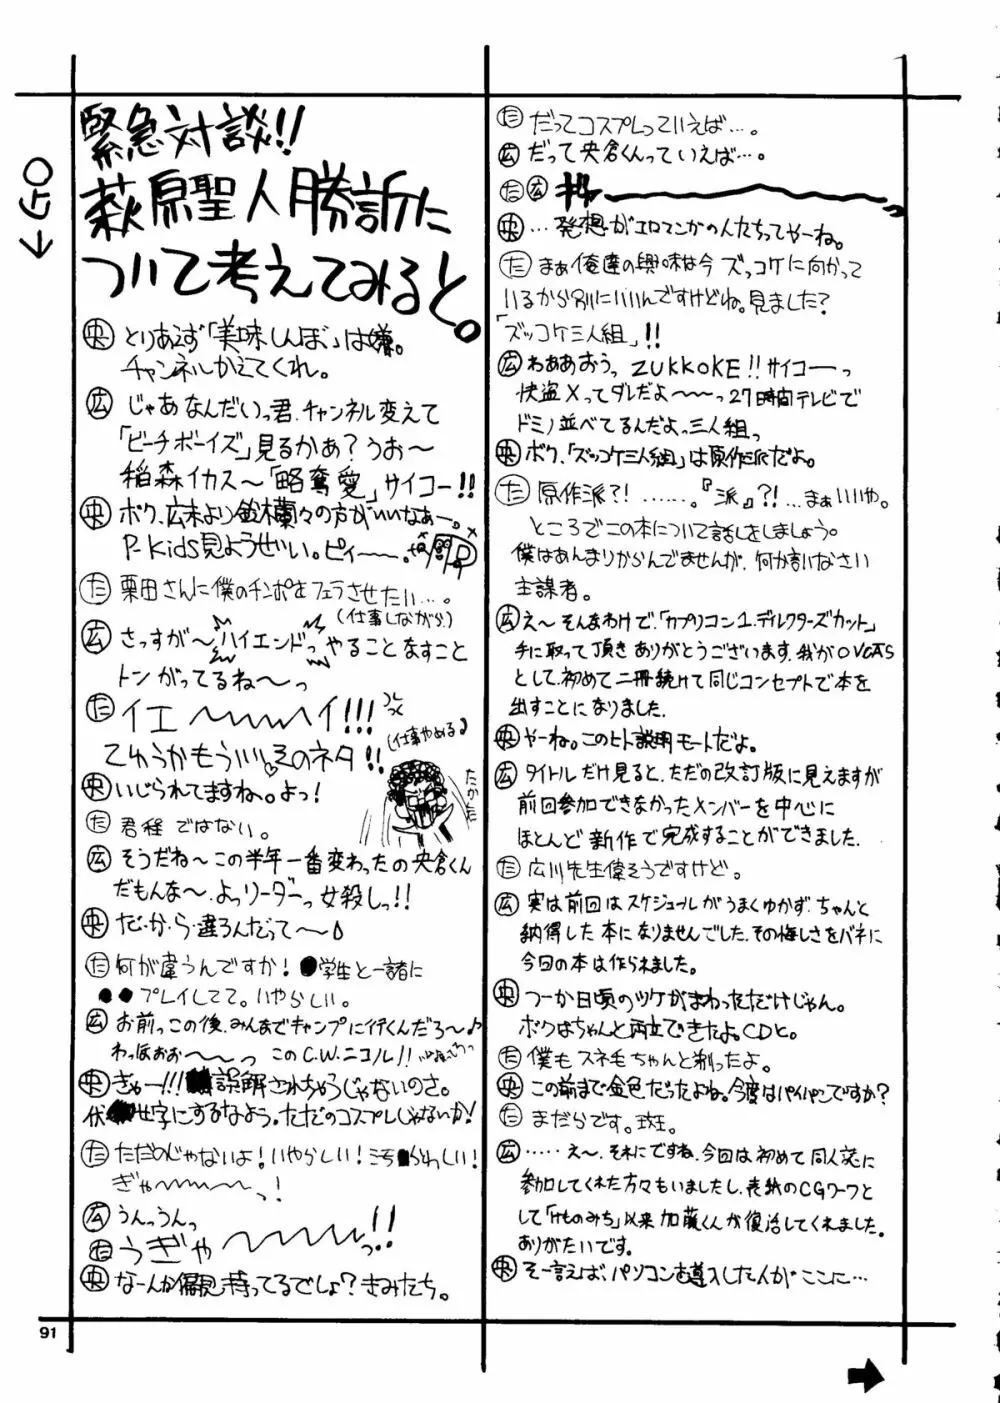 緊急対談!!
萩原聖人勝訴に
ついて考えてみると。
GO→
央 とりあえず「美味しんぼ」は嫌。
チャンネルかえてくれ。
広 じゃあなんだいっ君、チャンネル変えて
「ビーチボーイズ」見るかあ?うお〜
稲森イカス〜「略奪愛」サイコー!!
央 ボク、広末より鈴木蘭々の方がいいなぁー。
P-Kids見ようぜい。ピィ〜〜。
た 栗田さんに僕のチンポをフェラさせたい…。
(仕事しながら)
広 さっすが〜ハイエンドっやることなすこと
トンがってるね〜っ
た イエ〜〜〜イ!!!
てゆうかもういいそのネタ!!
(仕事やめる)
央 いじられてますね。よっ!
た 君程ではない。
広 そうだね〜この半年一番変わったの央倉くん
だもんな〜、よっリーダーっ女殺しっ!!
央 だ・か・ら・違ろんだって〜
た 何が違うんですか!●学生と一諸に
●●プレイしてて。いやらしい。
広 お前っこの後、みんなでキャンプに行くんだろ〜
わっほぉぉ〜〜っ このC.W.ニコル!!
央 ぎゃー!!!誤解されちゃうじゃないのさ。
伏せ字にするなよう。ただのコスプレじゃないか!
た ただのじゃないよ!いやらしい!汚らわしい!
ぎゃ〜〜〜っ!
広 うんっうんっ
た うぎゃ〜〜〜っ!!
央 なーんか偏見持ってるでしょ?きみたち。
91
た だってコスプレっていえば…。
広 だって央倉くんっていえば…。
た 広
央 …発想がエロマンガの人たちってやーね。
た まぁ俺達の興味は今ズッコケに向かって
いるから別にいいんですけどね。見ました?
「ズッコケ三人組」!!
広 わぁぁおぅ、ZUKKOKE!!サイコーっ
快盗Xってダレだよ〜〜っ27時間テレビで
ドミノ並べてるんだよっ三人組っ
央 ボク、「ズッコケ三人組」は原作派だよ。
た 原作派?!……。『派』?!…まぁいいや。
ところでこの本について話しをしましょう。
僕はあんまりからんでませんが、何か言いなさい
主謀者。
広 え〜そんなわけで、「カプリコン1.ディレクターズカット」
手に取って頂きありがとうございます。我がOVCA'S
として、初めて二冊続けて同じコンセプトで本を
出すことになりました。
央 やーね。このヒト説明モードだよ。
広 タイトルだけ見ると、ただの改訂版に見えますが
前回参加できなかったメンバーを中心に
ほとんど新作で完成することができました。
た 広川先生偉そうですけど。
広 実は前回はスケジュールがうまくゆかず、ちゃんと
納得した本になりませんでした。その悔しさをバネに
今回の本は作られました。
央 つーか日頃のツケがまわっただけじゃん。
ボクはちゃんと両立できたよ。CDと。
た 僕もスネ毛ちゃんと剃ったよ。
央 この前まで金色だったよね。今度はパイパンですか?
た まだらです。斑。
広 ……え〜、それにですね、今回は初めて同人誌に
参加してくれた方々もいましたし、表紙のCGワークと
して「けものみち」以来加藤くんが復活してくれました。
ありがたいです。
央 そー言えば、パソコンを導入した人がここに…